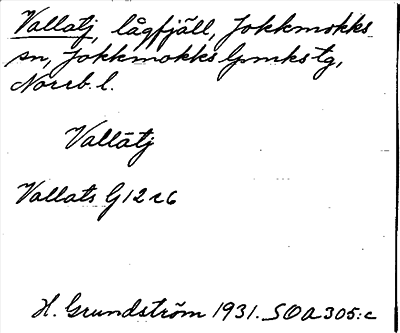 Vallatj, lågfjäll, Jokkmokks
sn, Jokkmokks lpmks tg,
Norrb. l.
Vallātj
Vallats G12 r6
H. Grundström 1931. SOA 305:c